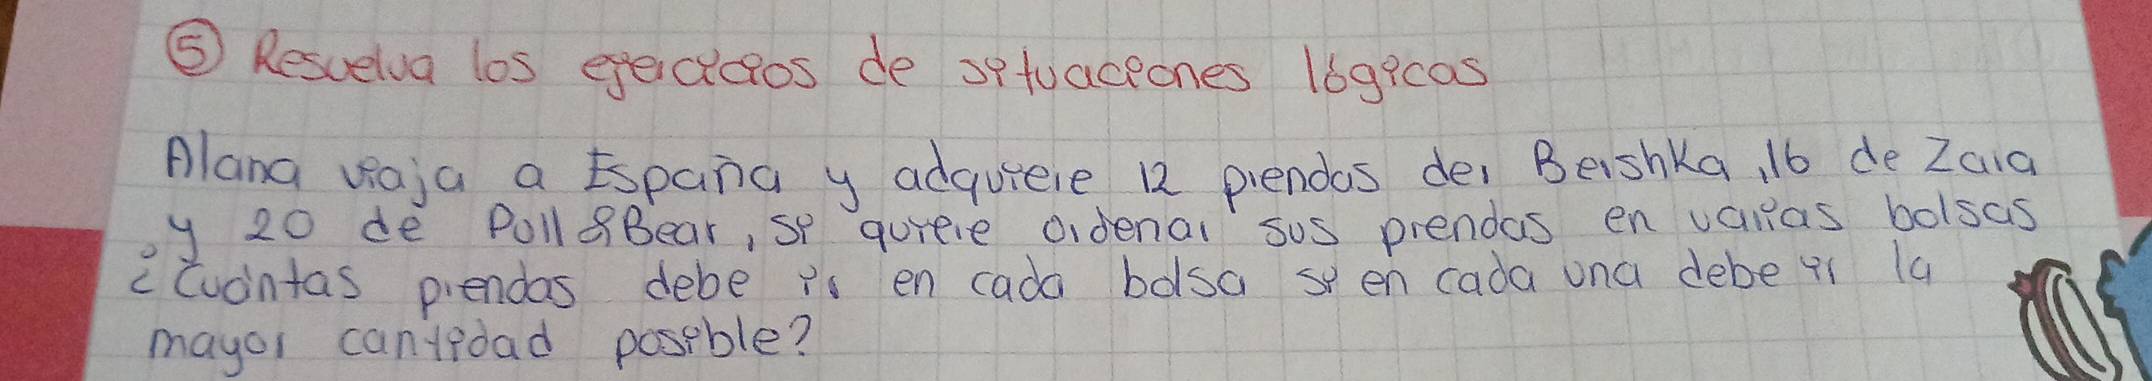 ⑤ Resuelva los ejercicios de situaciones lógicas
Alana viaja a España y adquiere 12 prendas der Bershka, 16 de Zara
y 20 de Pull & Bear, si quiere ordenar sus prendas en varias bolsas
¿Cuántas prendas debe ir en cada bolsa si en cada una debe ir la
mayor cantidad posible?